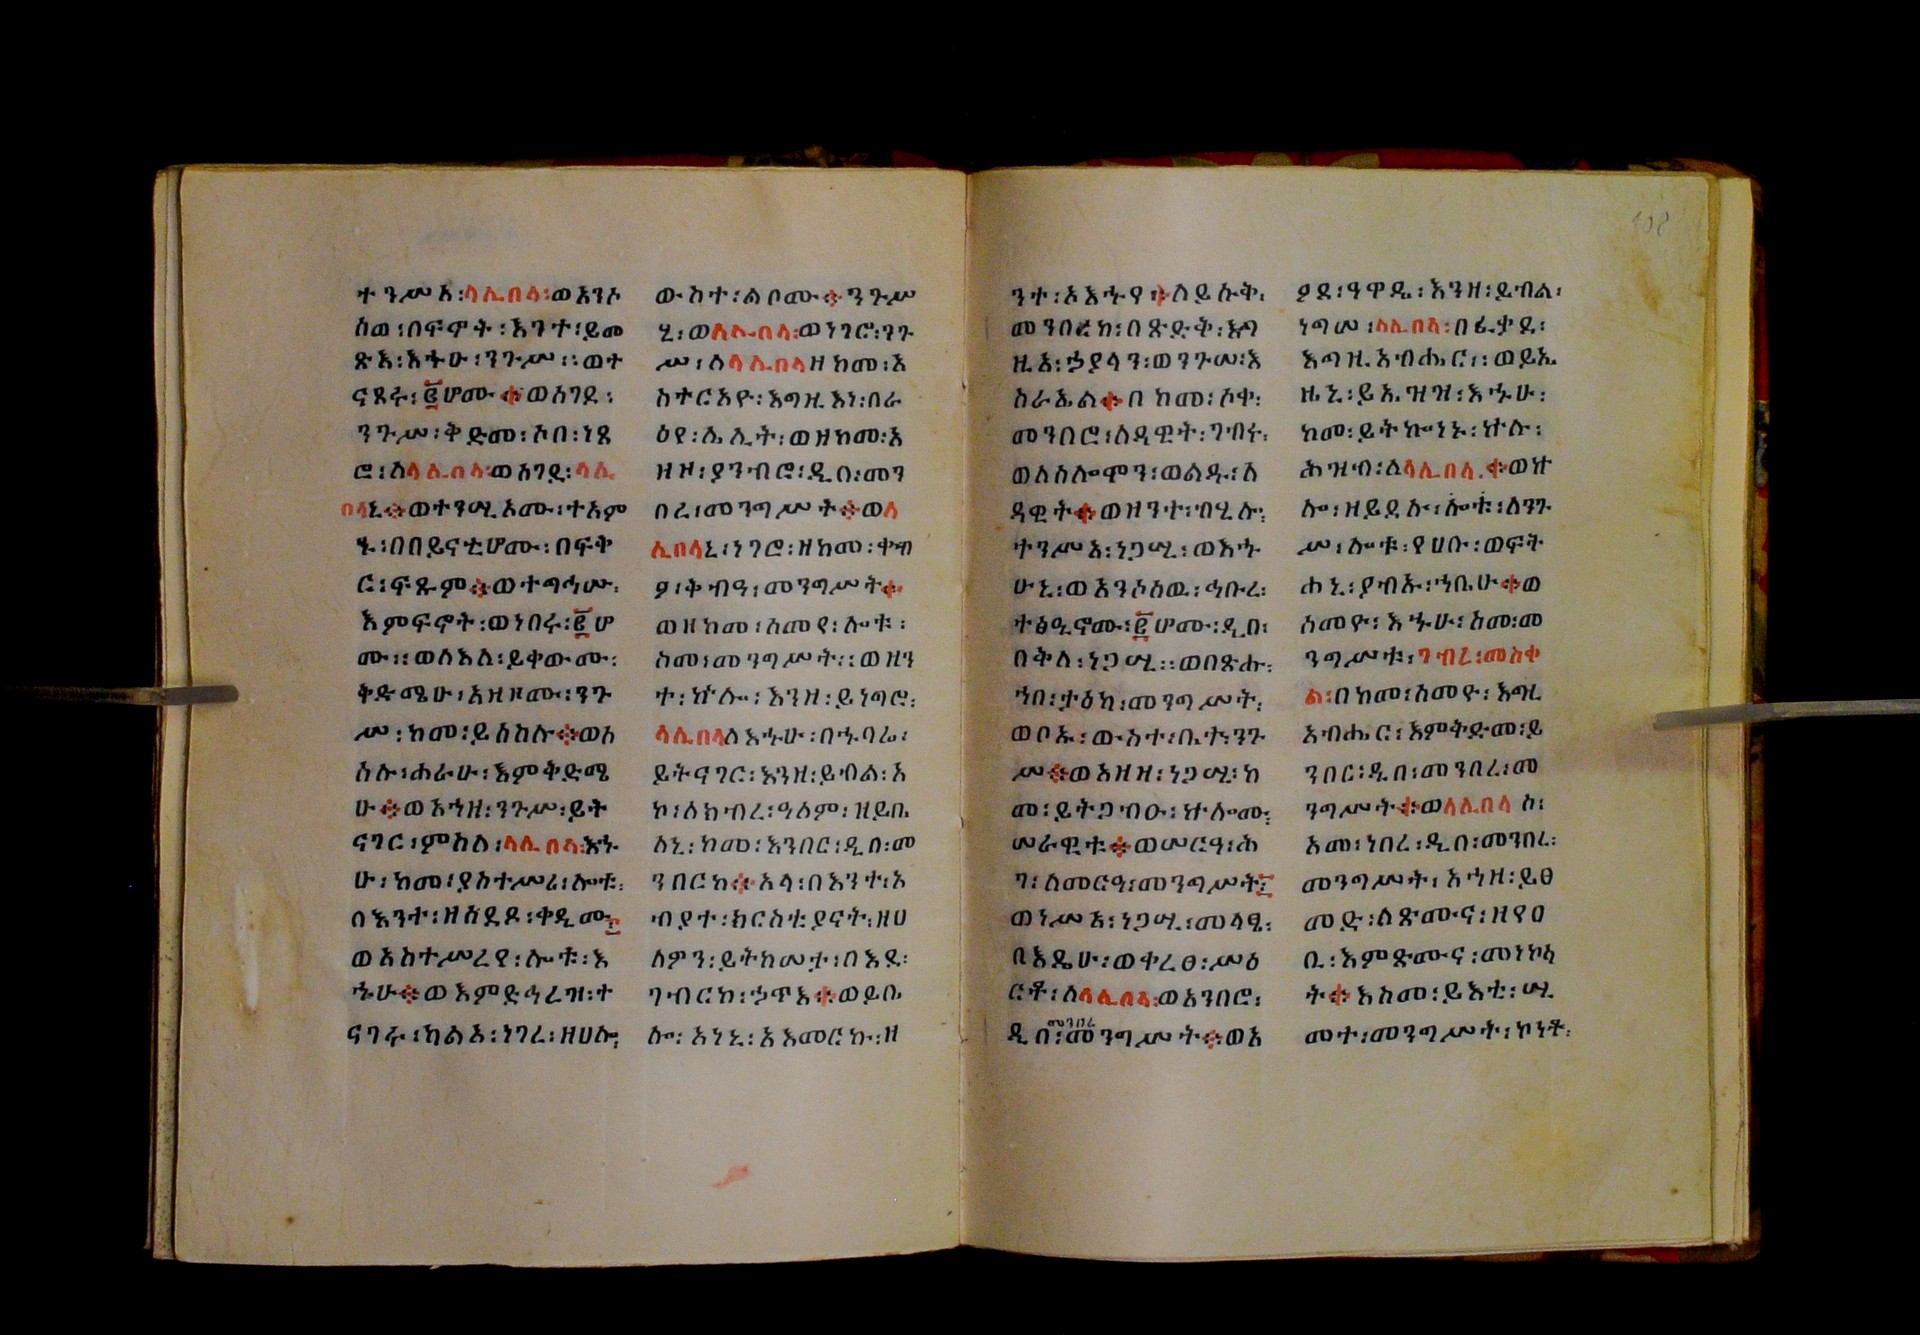 ተንሥአ፡ላሊበላ፡ወአንሶ
ሰወ፡በፍኖት፡እንተ፡ይመ
ጽእ፡እኁሁ፡ንጉሥ፡፡ወተ
ናጸሩ፡፪ሆሙ፨ወአገደ፡
ንጉሥ፡ቅድመ፡ሶበ፡ነጸ
ሮ፡ለላሊበላ፡ወአገደ፡ላሊ
በላኒ፨ወተንሢኦሙ፡ተአም
ኁ፡በበይናቲሆሙ፡በፍቅ
ር፡ፍጹም፨ወተጣኅሡ፡
እምፍኖት፡ወነበሩ፡፪ሆ
ሙ፡፡ወለእለ፡ይቀውሙ፡
ቅድሜሁ፡አዘዞሙ፡ንጉ
ሥ፡ከመ፡ይሰስሉ፨ወሰ
ሰሉ፡ሐራሁ፡እምቅድሜ
ሁ፨ወአኀዘ፡ንጉሥ፡ይት
ናገር፡ምስለ፡ላሊበላ፡እኁ
ሁ፡ከመ፡ያስተሥሪ፡ሎቱ፡
በእንተ፡ዘሰደዶ፡ቀዲሙ፡
ወአስተሥረየ፡ሎቱ፡እ
ኁሁ፨ወእምድኅረዝ፡ተ
ናገሩ፡ካልአ፡ነገረ፡ዘሀሎ፡
ውስተ፡ልቦሙ፨ንጉሥ
ሂ፡ወለሊበላ፡ወነገሮ፡ንጉ
ሥ፡ለላሊበላ፡ዘከመ፡አ
ስተርአዮ፡እግዚእነ፡በራ
ዕየ፡ሌሊት፡ወዘከመ፡አ
ዘዞ፡ያንብሮ፡ዲበ፡መን
በረ፡መንግሥት፨ወላ
ሊበላኒ፡ነገሮ፡ዘከመ፡ቀብ
ዖ፡ቅብዓ፡መንግሥት፨
ወዘከመ፡ሰመየ፡ሎቱ፡
ስመ፡መንግሥት፡፡ወዘን
ተ፡ኵሎ፡እንዘ፡ይነግሮ፡
ላሊበላ፡ለእኁሁ፡በኁባሬ፡
ይትናገር፡እንዘ፡ይብል፡አ
ኮ፡ለክብረ፡ዓለም፡ዘይቤ
ለኒ፡ከመ፡እንበር፡ዲበ፡መ
ንበርከ፨አላ፡በእንተ፡አ
ብያተ፡ክርስቲያናት፡ዘሀ
ለዎን፡ይትከሠታ፡በእደ፡
ገብርከ፡ኃጥእ፨ወይቤ
ሎ፡አነኒ፡አአመርኩ፡ዘ
ንተ፡ኦእኁየ፨ለይኩቅ፡
መንበርከ፡በጽድቅ፡እግ
ዚአ፡ኃያላን፡ወንጉሠ፡እ
ስራኤል፨በከመ፡ሶቀ፡
መንበሮ፡ለዳዊት፡ገብሩ፡
ወለሰሎሞን፡ወልዱ፡ለ
ዳዊት፨ወዘንተ፡ብሂሎ፡
ተንሥአ፡ነጋሢ፡ወእኁ
ሁኒ፡ወአንሶሰዉ፡ኅቡረ፡
ተፅዒኖሙ፡፪ሆሙ፡ዲበ፡
በቅለ፡ነጋሢ፡፡ወበጽሑ፡
ኀበ፡ታዕካ፡መንግሥት፡
ወቦኡ፡ውስተ፡ቤተ፡ንጉ
ሥ፨ወአዘዘ፡ነጋሢ፡ከ
መ፡ይትጋብዑ፡ኵሎሙ፡
ሠራዊቱ፨ወሠርዓ፡ሕ
ገ፡ስመርዓ፡መንግሥት፡
ወነሥአ፡ነጋሢ፡መላፄ፡
በእዴሁ፡ወቀረፀ፡ሥዕ
ርቶ፡ለላሊበላ፡ወአንበሮ፡
መንበረ
ዲበ፡መንግሥት፨ወአ
ያደ፡ዓዋዲ፡እንዘ፡ይብል፡
ነግሠ፡ለሊበላ፡በፈቃደ፡
እግዚአብሔር፡፡ወይኤ
ዜኒ፡ይኤዝዝ፡እኁሁ፡
ከመ፡ይትኰነኑ፡ኵሉ፡
ሕዝብ፡ለላሊበላ፨ወኵ
ሎ፡ዘይደሉ፡ሎቱ፡ለንጉ
ሥ፡ሎቱ፡የሀቡ፡ወፍት
ሐኒ፡ያብኡ፡ኀቤሁ፨ወ
ሰመዮ፡እኁሁ፡ስመ፡መ
ንግሥቱ፡ገብረ፡መስቀ
ል፡በከመ፡ሰመዮ፡እግዚ
አብሔር፡እምቅድመ፡ይ
ንበር፡ዲበ፡መንበረ፡መ
ንግሥት፨ወላሊበላ፡ሶ፡
አመ፡ነበረ፡ዲበ፡መንበረ፡
መንግሥት፡አኀዘ፡ይፀ
መድ፡ለጽሙና፡ዘየዐ
ቢ፡እምጽሙና፡መነኮሳ
ት፨እስመ፡ይእቲ፡ሢ
መተ፡መንግሥት፡ኮነቶ፡